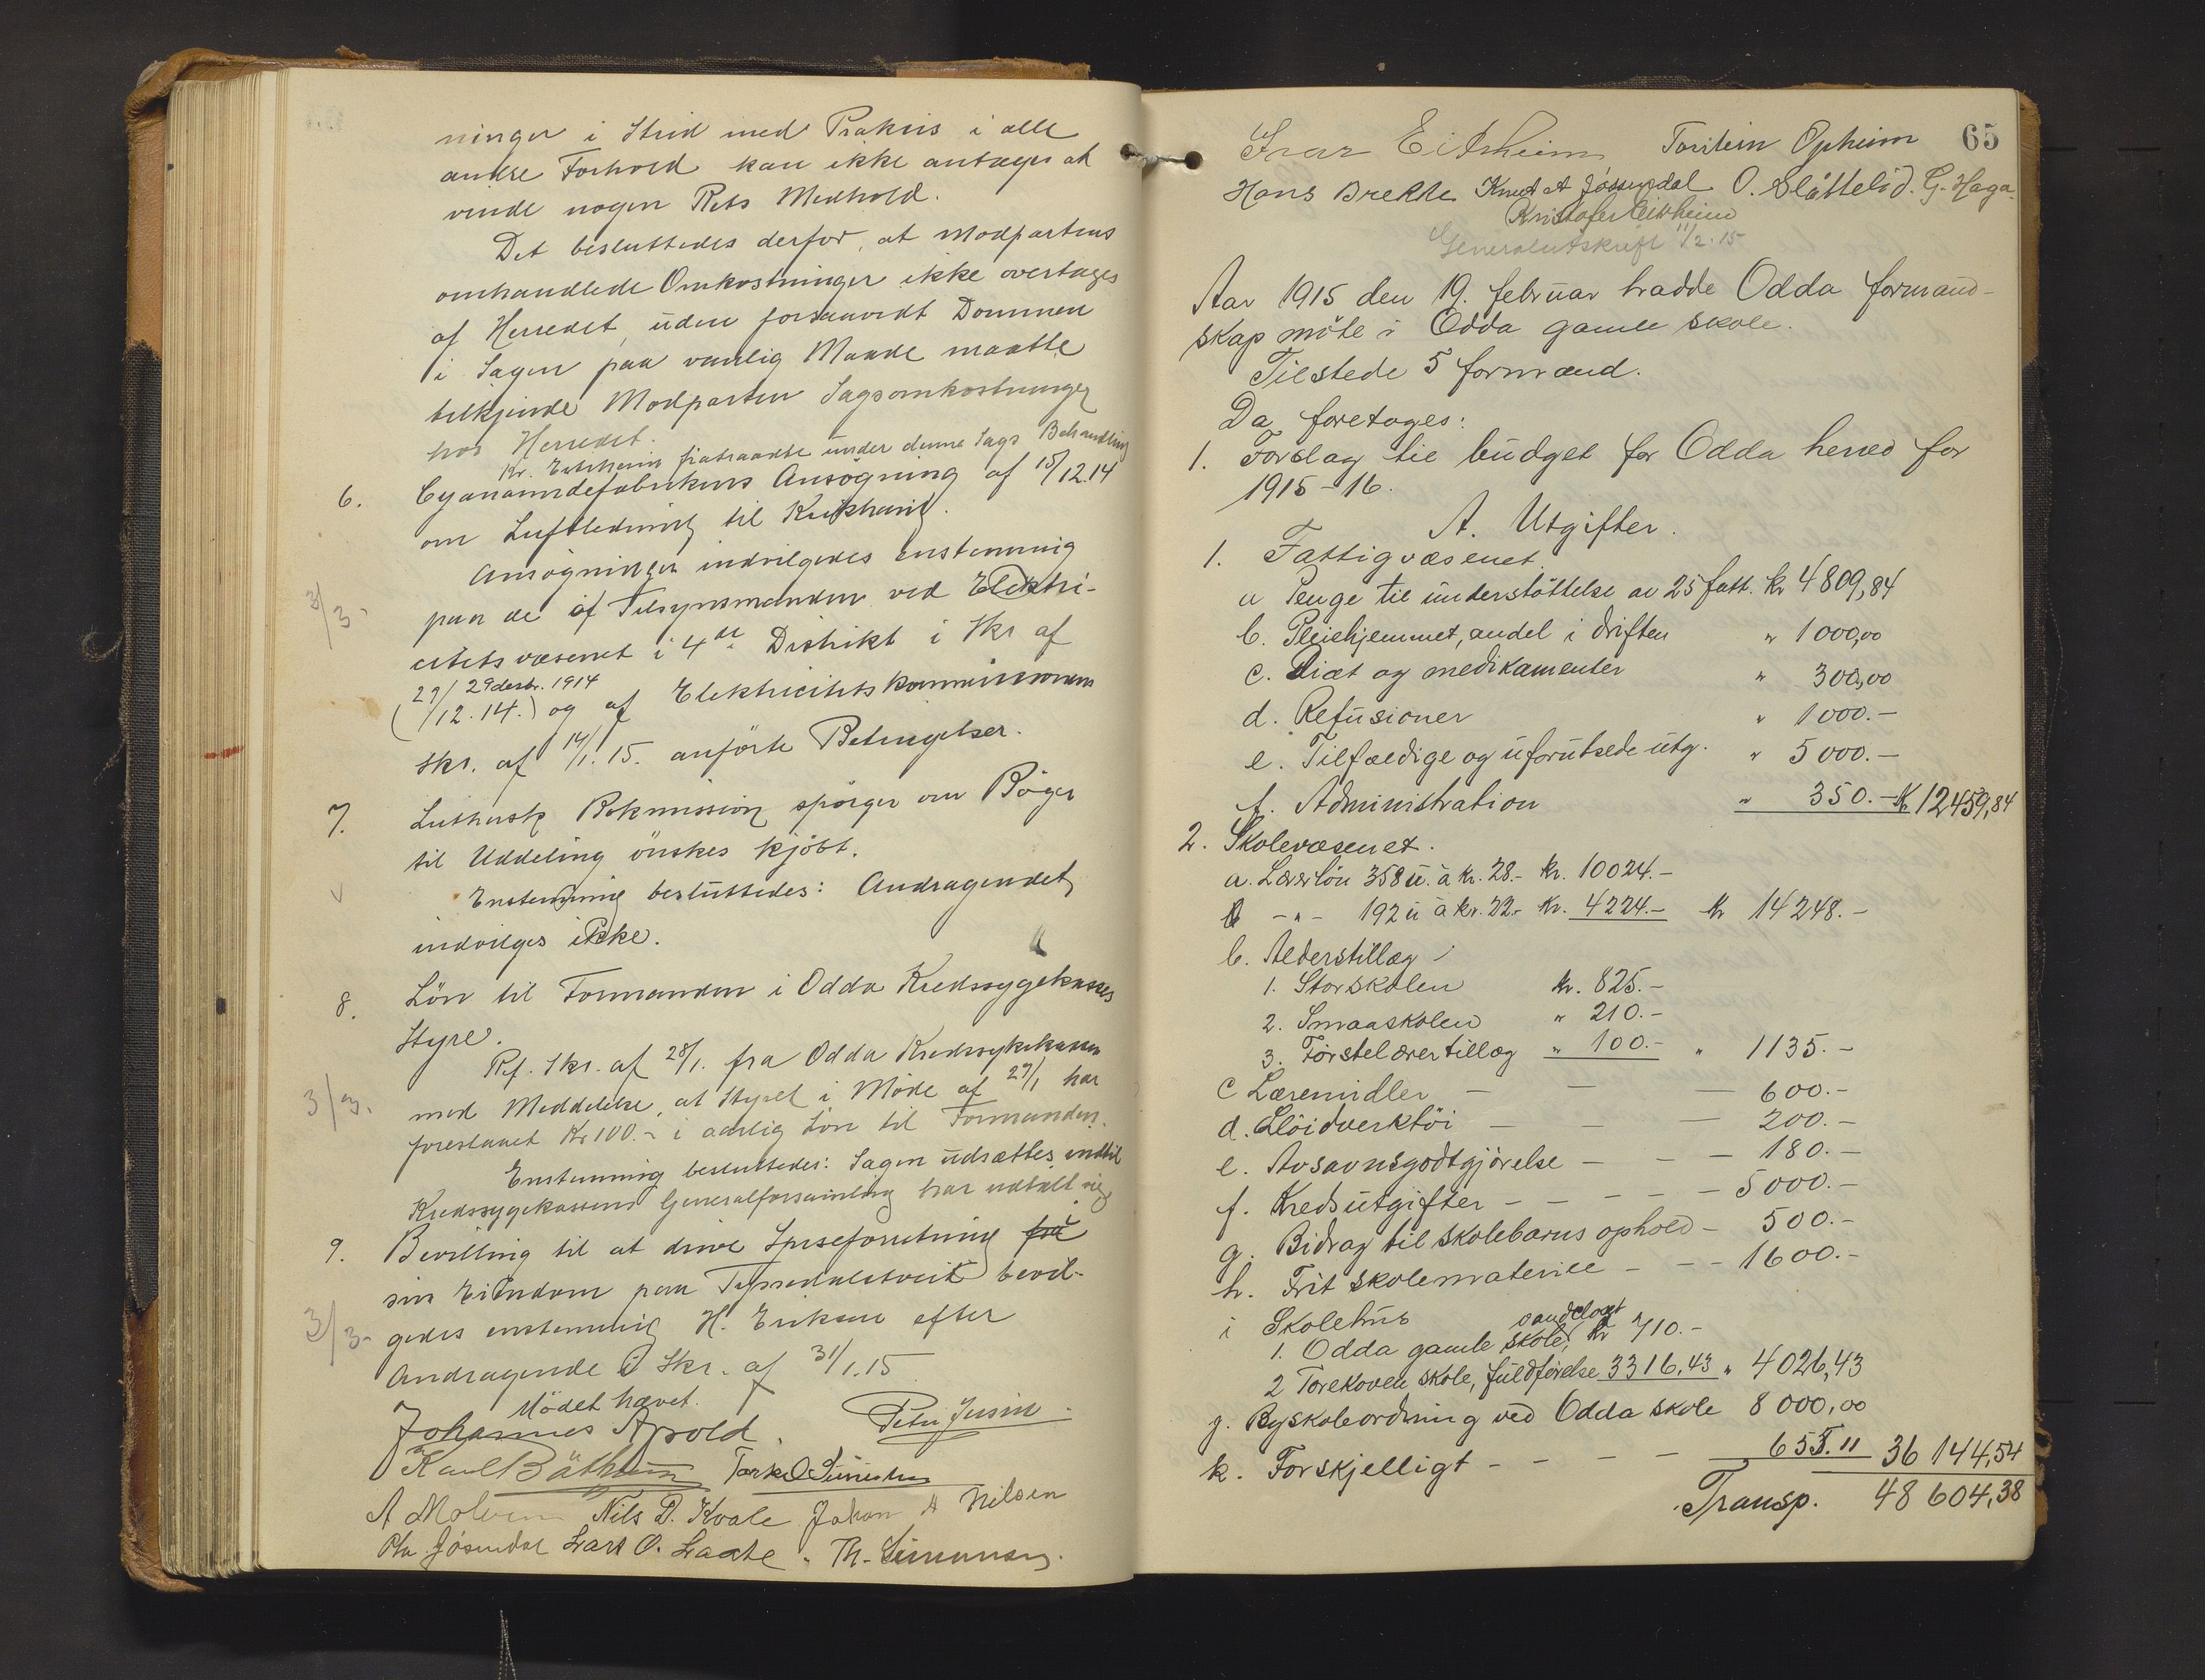 ninger i Strid med Praksis i alle
andre Forhold kan ikke antages at
vinde nogen Rets Medhold.
Det besluttedes derfor, at Modpartens
omhandlede Omkostninger ikke overtages
af Herredet, uden forsaavidt Dommen
i Sagen paa vanlig Maade maatte
tilkjende Modparten Sagsomkostninger
hos Herredet.
Kr. Eitrheim fratraadte under denne Sags Behandling
6. Cyanamidefabrikens Ansögning af 15/12.14
om Luftledning til
Ansögningen indvilgedes enstemmig
3/3- paa de af Tilsynsmanden ved Elektri-
citetsvæsenet i 4de Distrikt i Skr af
29 desbr. 1914
(29/12.14.) og af Elektricitetskommissionens
Skr. af 14/1.15. anförte Betingelser.
7. Luthersk Bokmission spörger om Böger
til Uddeling önskes kjöbt.
V Enstemmig besluttedes: Andragendet
indvilges ikke.
8. Lön til Formanden i Odda Kredssygekasses
Styre.
Ref. Skr. af 28/1. fra Odda Kredssykekasse
3/3. med Meddelelse, at Styret i Möde af 27/1 har
foreslaaet Kr 100.- i aarlig Lön til Formanden.
Enstemmig besluttedes: Sagen udsættes indtil
Kredssygekassens Generalforsamling har udtalt sig
9. Bevilling til at drive Spiseforretning paa i
sin Eiendom paa Tyssedalstveit bevil-
3/3- gedes enstemmig H. Eriksen efter
Andragende i Skr. af 31/1.15
Mödet hævet.
Johannes Apold. Peter Jusin
Karl Bäthum Torkel
A Molven Nils D. Kvale Johan A Nilsen
Ola Jösendal Lars O. Laate. Th. Simonsen.
65
Ivar Eitrheim Torstein Opheim
Hans Brekke Knut A Jössendal O. Slåttelid. G. Haga.
Kristofer Eitrheim
Generalutskrift 11/2.15
Aar 1915 den 19. februar hadde Odda formand-
skap möte i Odda gamle skole.
Tilstede 5 formænd.
Da foretoges:
1. Forslag til budget for Odda herred for
1915-16.
A. Utgifter.
1. Fattigvæsenet.
a Penge til understöttelse av 25 fatt. kr 4809,84
b. Pleiehjemmet, andel i driften " 1000,00
c. Diæt og medikamenter " 300,00
d. Refusioner " 1000.-
e. Tilfældige og uforutsede utg. " 5000.-
f. Administration " 350.- Kr 12459,84
2. Skolevæsenet.
a. Lærerlön 358 u. à kr. 28.- kr. 10024.-
-"- 192 u à kr. 22.- kr. 4224.- kr 14248.-
b. Alderstillæg
1. Storskolen kr. 825.-
2. Smaaskolen " 210.-
3. Førstelærertillæg " 100.- " 1135.-
c Læremidler - - - 600.-
d. Slöidverktöi - - - 200.-
e. Avsavnsgodtgjörelse - - - 180.-
f. Kredsutgifter - - - - - 5000.-
g. Bidrag til skolebarns ophold - 500.-
h. Frit skolemateriel - - - 1600.-
i Skolehus
1. Odda gamle skole, vandkloset kr 710.-
2 Torekoven skole, fuldførelse 3316,43 " 4026,43
j. Byskoleordning ved Odda skole 8000,00
k. Forskjelligt - - - - 655.11 36144,54
Transp. 48604,38